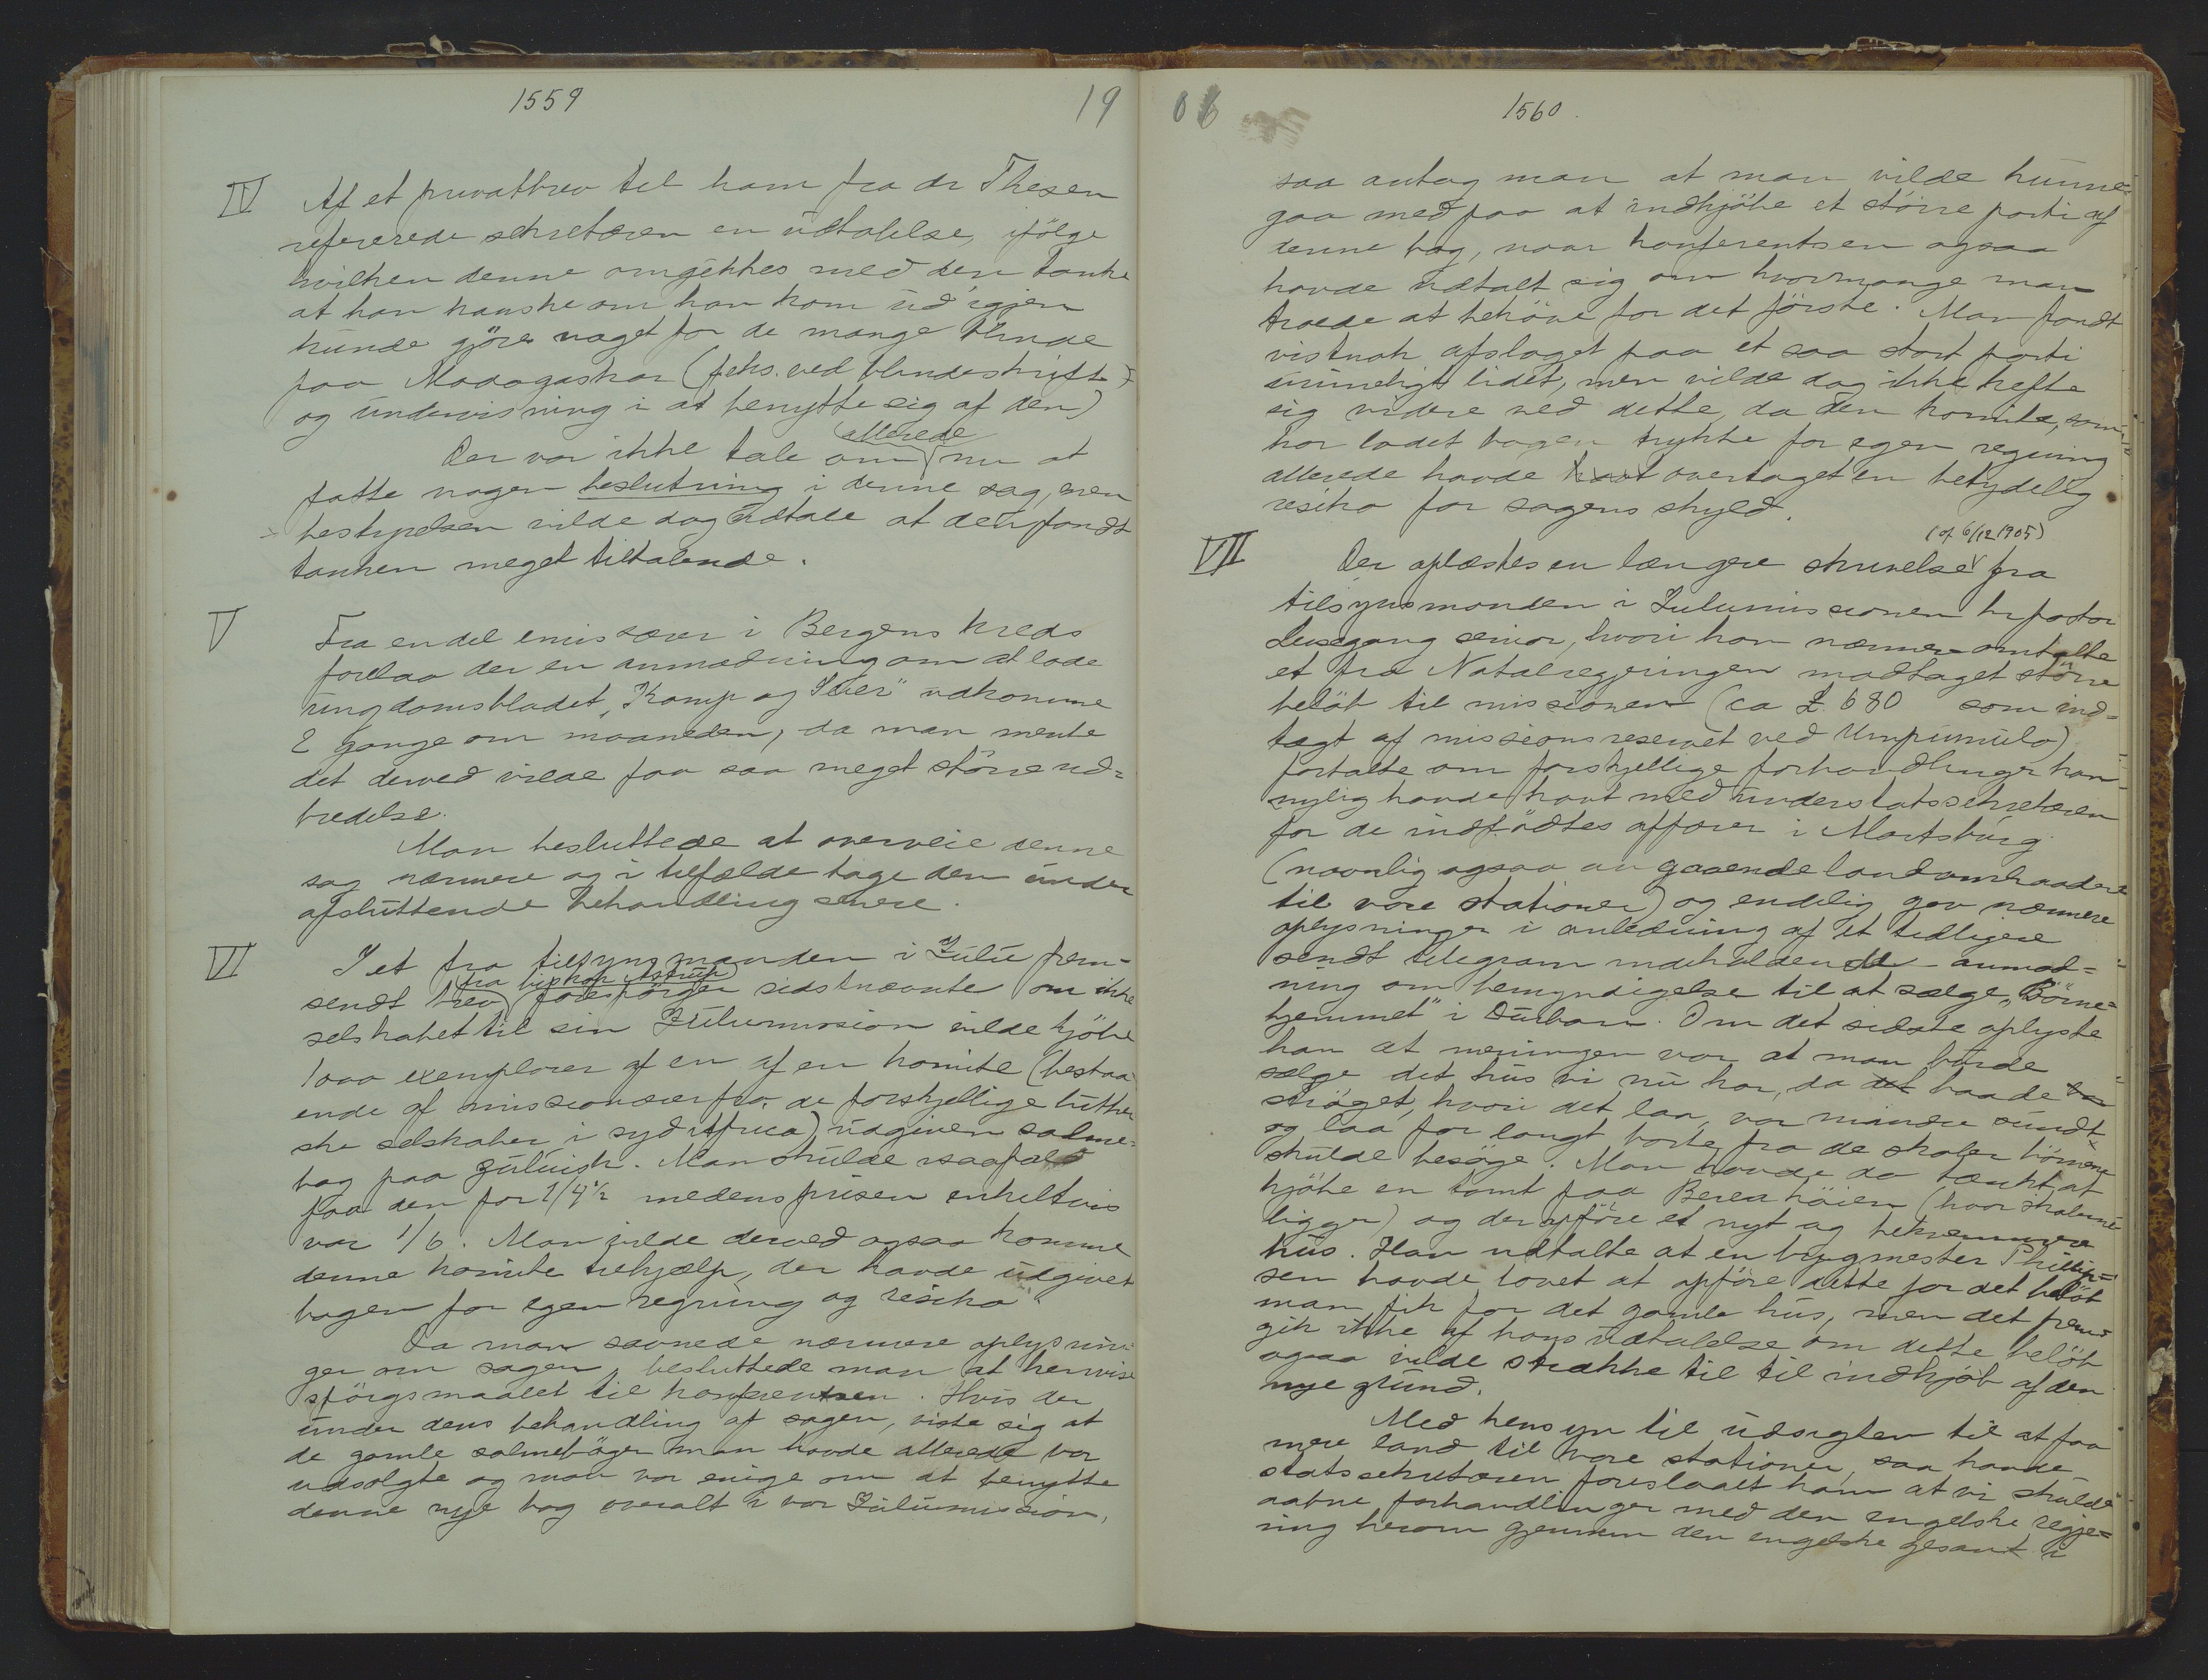 1559
19
IV Af et privatbrev til ham fra dr Thesen
refererede sekretæren en udtalelse, ifölge
hvilken denne omgikkes med den tanke
at han kanske om han kom ud igjen
kunde gjöre noget for de mange blinde
paa Madagaskar (f.eks. ved blindeskrift
og undervisning i at benytte sig af den)
Der var ikke tale om allerede nu at
fatte nogen beslutning i denne sag, men
bestyrelsen vilde dog udtale at den fandt
tanken meget tiltalende.
V Fra en del emissærer i Bergens kreds
forelaa der en anmodning om at lade
ungdomsbladet "Kamp og Seier" udkomme
2 gange om maaneden, da man mente
det derved vilde faa saa meget större ud=
bredelse.
Man besluttede at overveie denne
sag nærmere og i tilfælde tage den under
afsluttende behandling senere.
VI I et fra tilsynsmanden i Zulu frem-
sendt brev fra biskop Astrup forespörger sidstnævnte om ikke
selskabet til sin Zulumission vilde kjöbe
1000 exemplarer af en af en komite (bestaa
ende af missionærer fra de forskjellige luther
ske selskaber i syd Africa) udgiven salme=
bog paa zuluisk. Man skulde isaafald
faa den for 1/4½ medens prisen enkeltvis
var 1/6. Man vilde derved ogsaa komme
denne komite tilhjælp, der havde udgivet
bogen for egen regning og risiko.
Da man savnede nærmere oplysnin
ger om sagen, besluttede man at henvise
spörgsmaalet til konferentsen. Hvis der
under dens behandling af sagen, viste sig at
de gamle salmeböger man havde allerede var
udsolgte og man var enige om at benytte
denne nye bog overalt i vor Zulumission,
06
1560.
saa antog man at man vilde kunne
gaa med paa at indkjöbe et större parti af
denne bog, naar konferentsen ogsaa
havde udtalt sig om hvormange man
troede at behöve for det förste. Man fandt
vistnok afslaget paa et saa stort parti
urimeligt lidet, men vilde dog ikke hefte
sig videre ved dette, da den komite, som
har ladet bogen trykke for egen regning
allerede havde havt overtaget en betydelig
risiko for sagens skyld.
VII Der oplæstes en længere skrivelse (af 6/12 1905) fra
tilsynsmanden i Zulumissionen hr pastor
Leisegang senior, hvori han nærmere omtalte
et fra Natalregjeringen modtaget större
belöb til missionen (ca £ 680 som ind=
tægt af missionsreservet ved Umpumulo)
fortalte om forskjellige forhandlinger han
nylig havde havt med understatssekretæren
for de indfödtes affærer i Maritsburg
(navnlig ogsaa angaaende landomraader
til vore stationer) og endelig gav nærmere
oplysninger i anledning af et tidligere
sendt telegram indeholdende anmod=
ning om bemyndigelse til at sælge "Börne=
hjemmet" i Durban. Om det sidste oplyste
han at meningen var at man burde
sælge det hus vi nu har, da det baade var
ströget, hvori det laa, var mindre sundt
og laa for langt borte fra de skoler börnene
skulde besöge. Man havde da tænkt at
kjöbe en tomt paa Berea höien (hvor skolerne
ligger) og der opföre et nyt og bekvemmere
hus. Han udtalte at en bygmester Phillip=
sen havde lovet at opföre dette for det belöb
man fik for det gamle hus, men det frem
gik ikke af hans udtalelse om dette belöb
ogsaa vilde strække til til indkjöb af den
nye grund.
Med hensyn til udsigten til at faa
mere land til vore stationer, saa havde
statssekretæren foreslaaet ham at vi skulde
aabne forhandlinger med den engelske regje=
ring herom gjennem den engelske gesant i